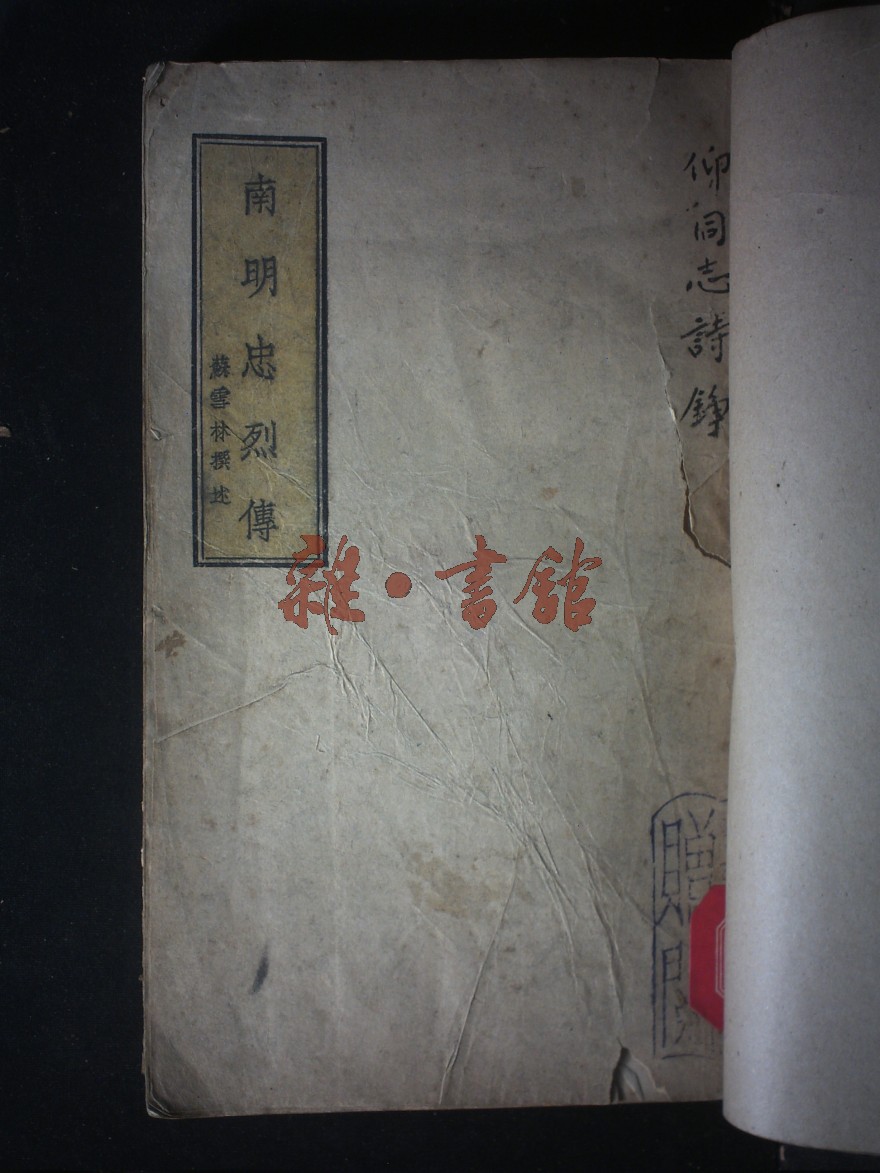 同志詩錚
南明忠烈傳
蘇雪林撰述
雜·書館
贈閱